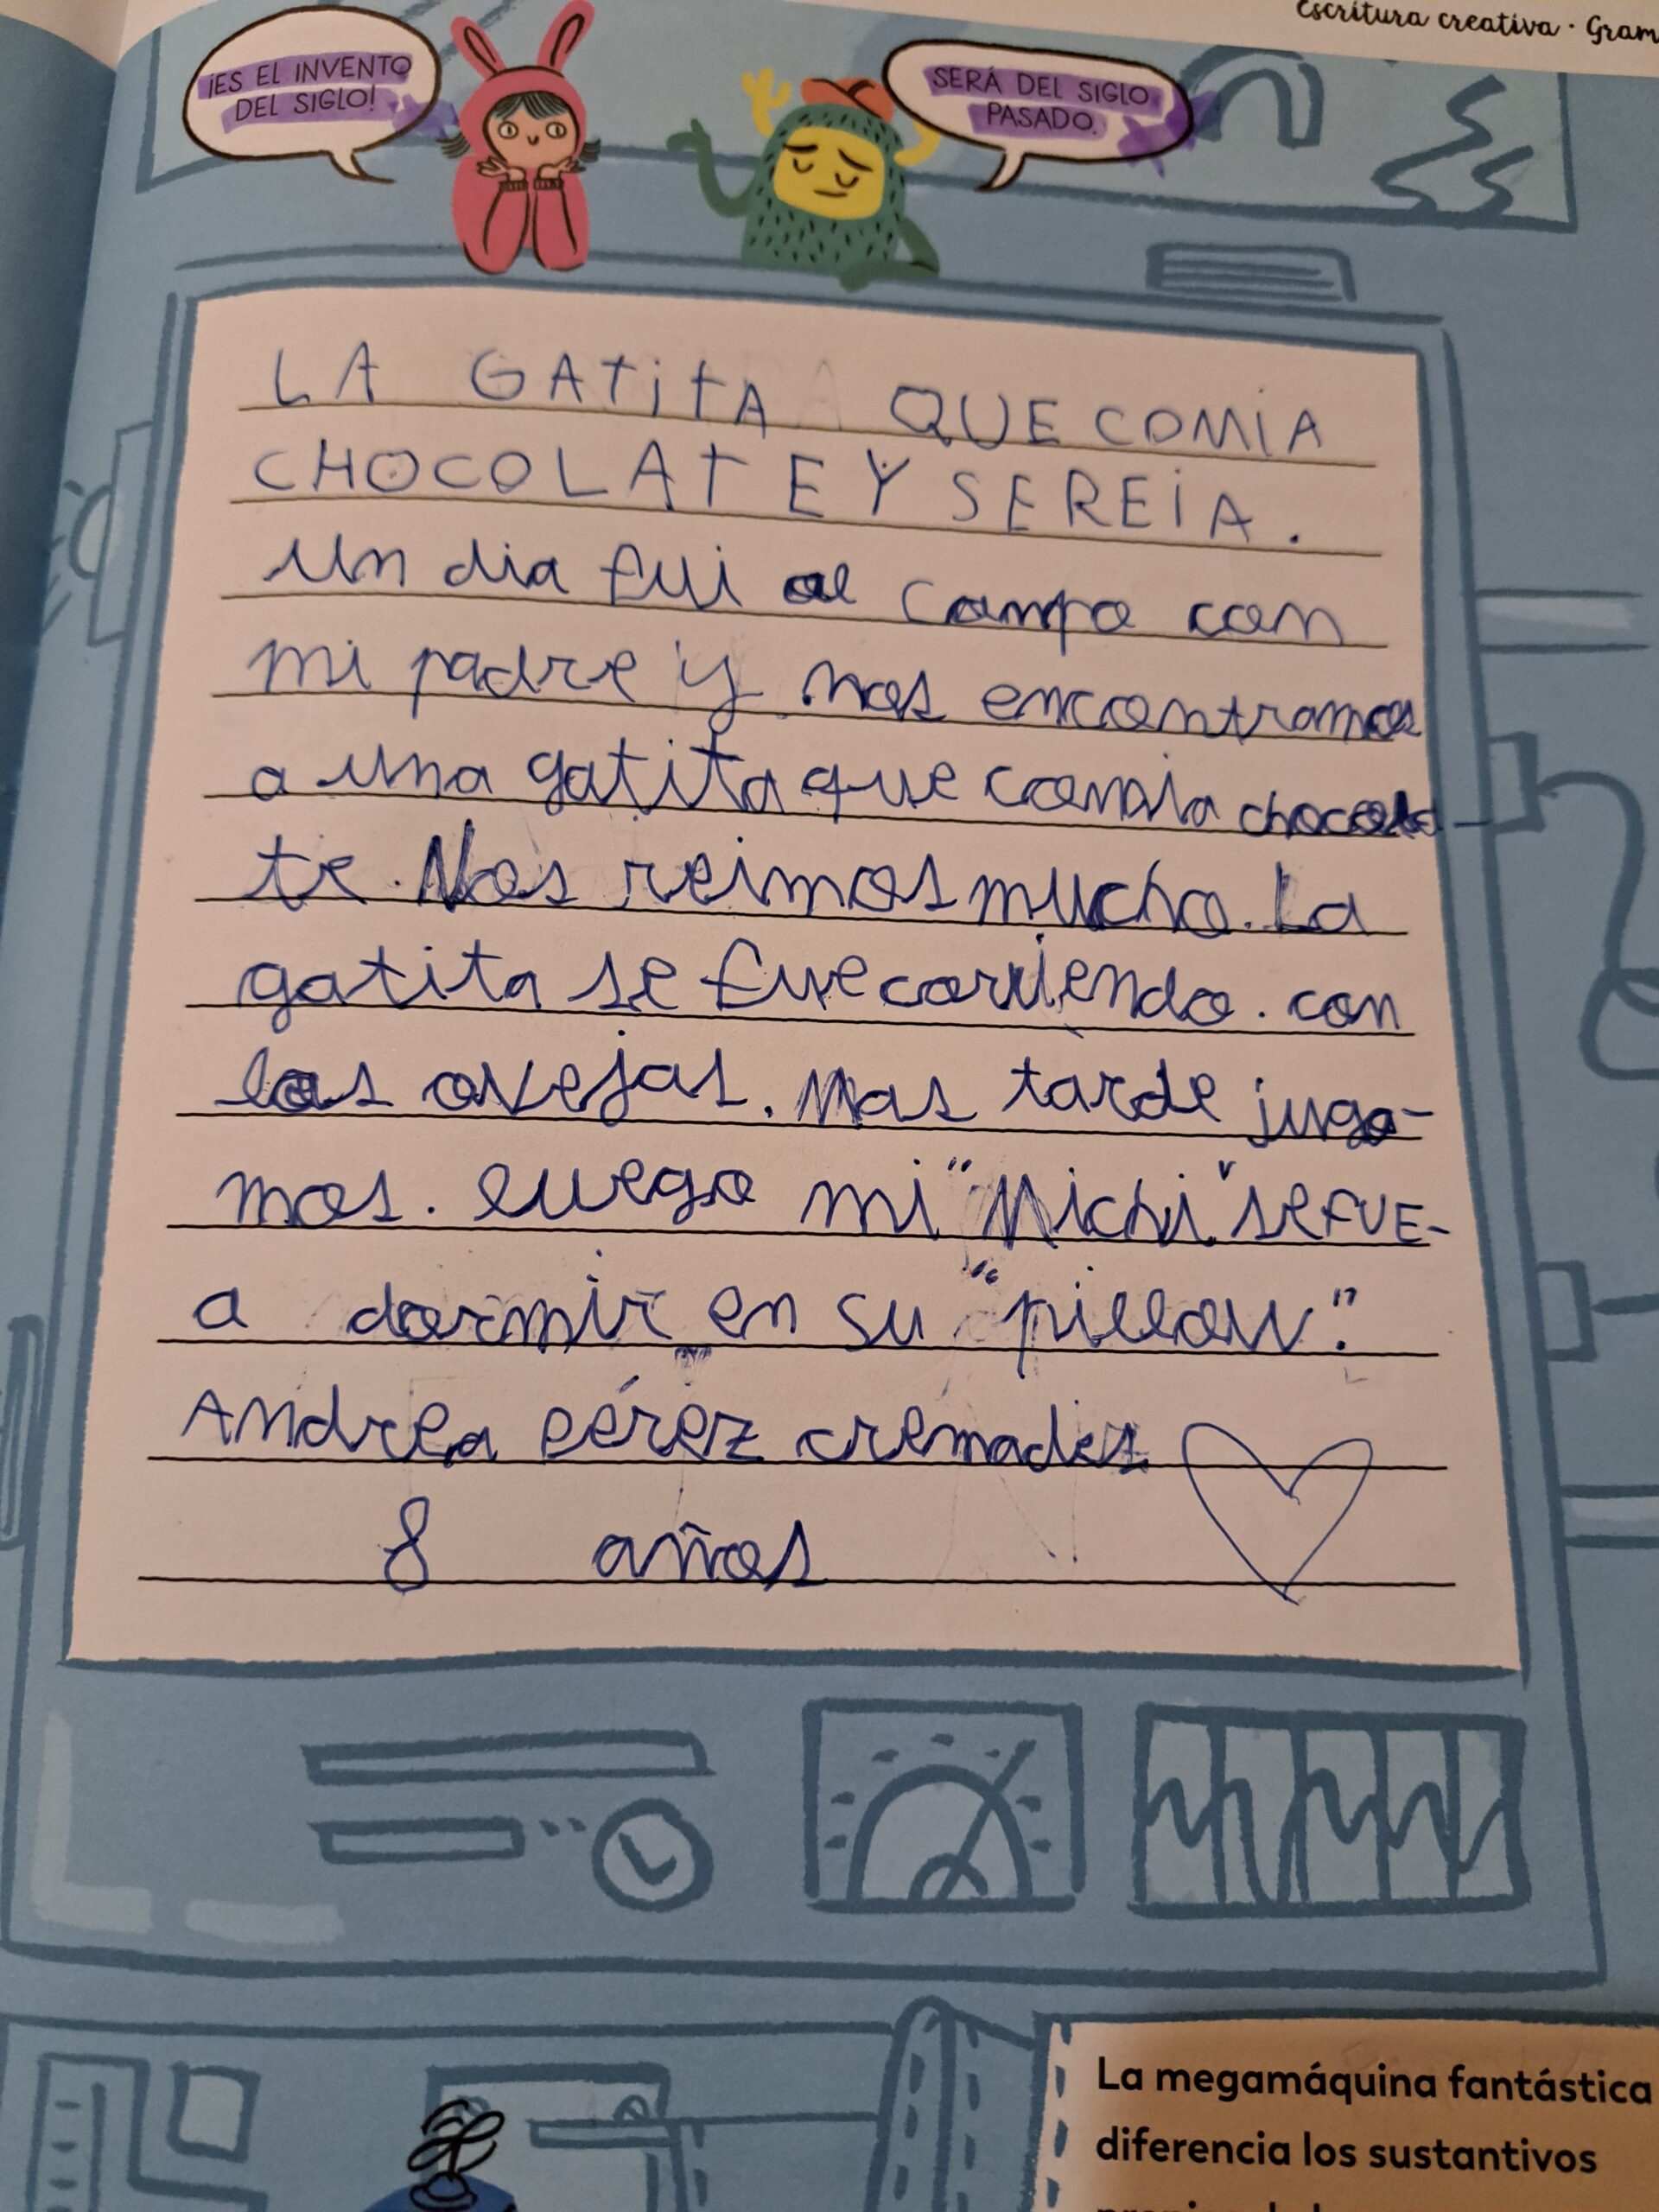 escritura creativa · Gram
¡ES EL INVENTO
DEL SIGLO!
SERÁ DEL SIGLO
PASADO.
LA GATiTA QUE COMIA
CHOCOLATE Y SEREIA.
Un dia fui al campo con
mi padre y nos encontramos
a una gatita que comia chocola-
te. Nos reimos mucho. La
gatita se fue corriendo. con
las ovejas. Mas tarde juga-
mos. luego mi "Michi" se FUE-
a dormir en su "pillow".
Andrea Pérez cremades
8 años
La megamáquina fantástica
diferencia los sustantivos